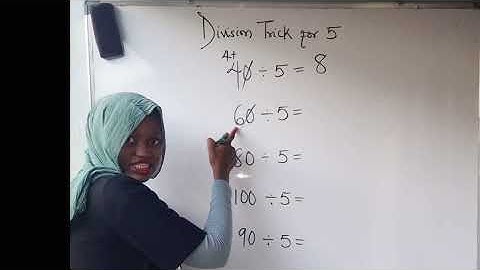 Division Trick for 5
4+
40 ÷ 5 = 8
60 ÷ 5 =
80 ÷ 5 =
100 ÷ 5 =
90 ÷ 5 =